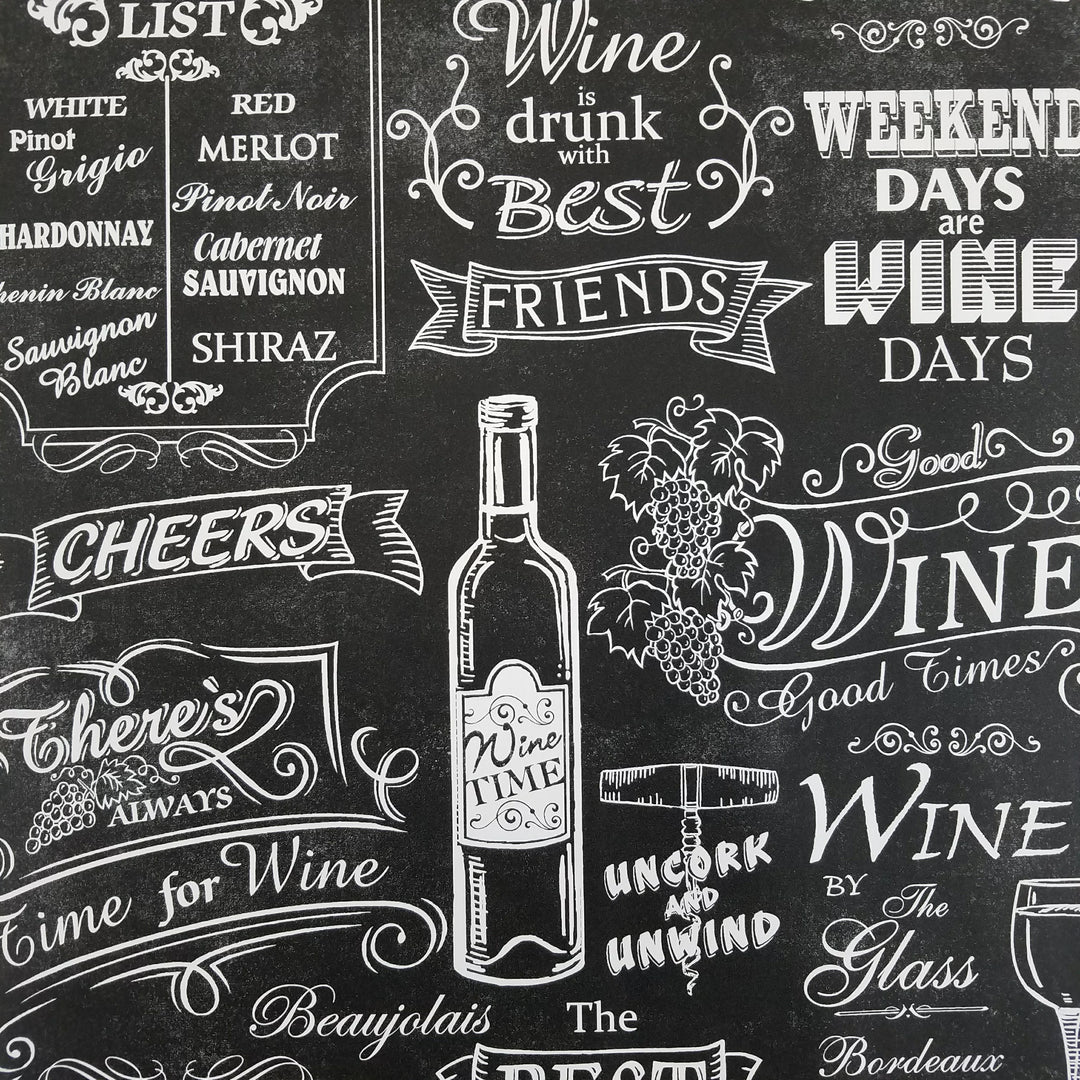 LIST
WHITE
Pinot
Grigio
HARDONNAY
henin Blanc
Sauvignon
Blanc
RED
MERLOT
Pinot Noir
Cabernet
SAUVIGNON
SHIRAZ
Wine
is
drunk
with
BEST
FRIENDS
WEEKEND
DAYS
are
WINE
DAYS
CHEERS
Good
WINE
Good Times
There's
ALWAYS
Time for Wine
Wine
TIME
UNCORK
AND
UNWIND
WINE
BY
The
Glass
Bordeaux
Beaujolais
The
BEST